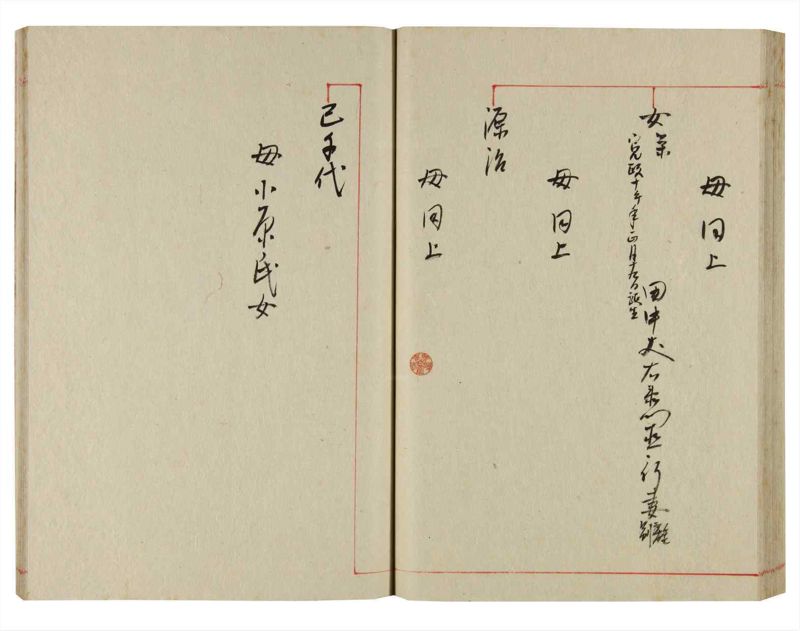 母同上
女
寛政十午年 月十九日誕生
田中 右衛門 行妻離別
母同上
源治
母同上
己千代
母小原氏女